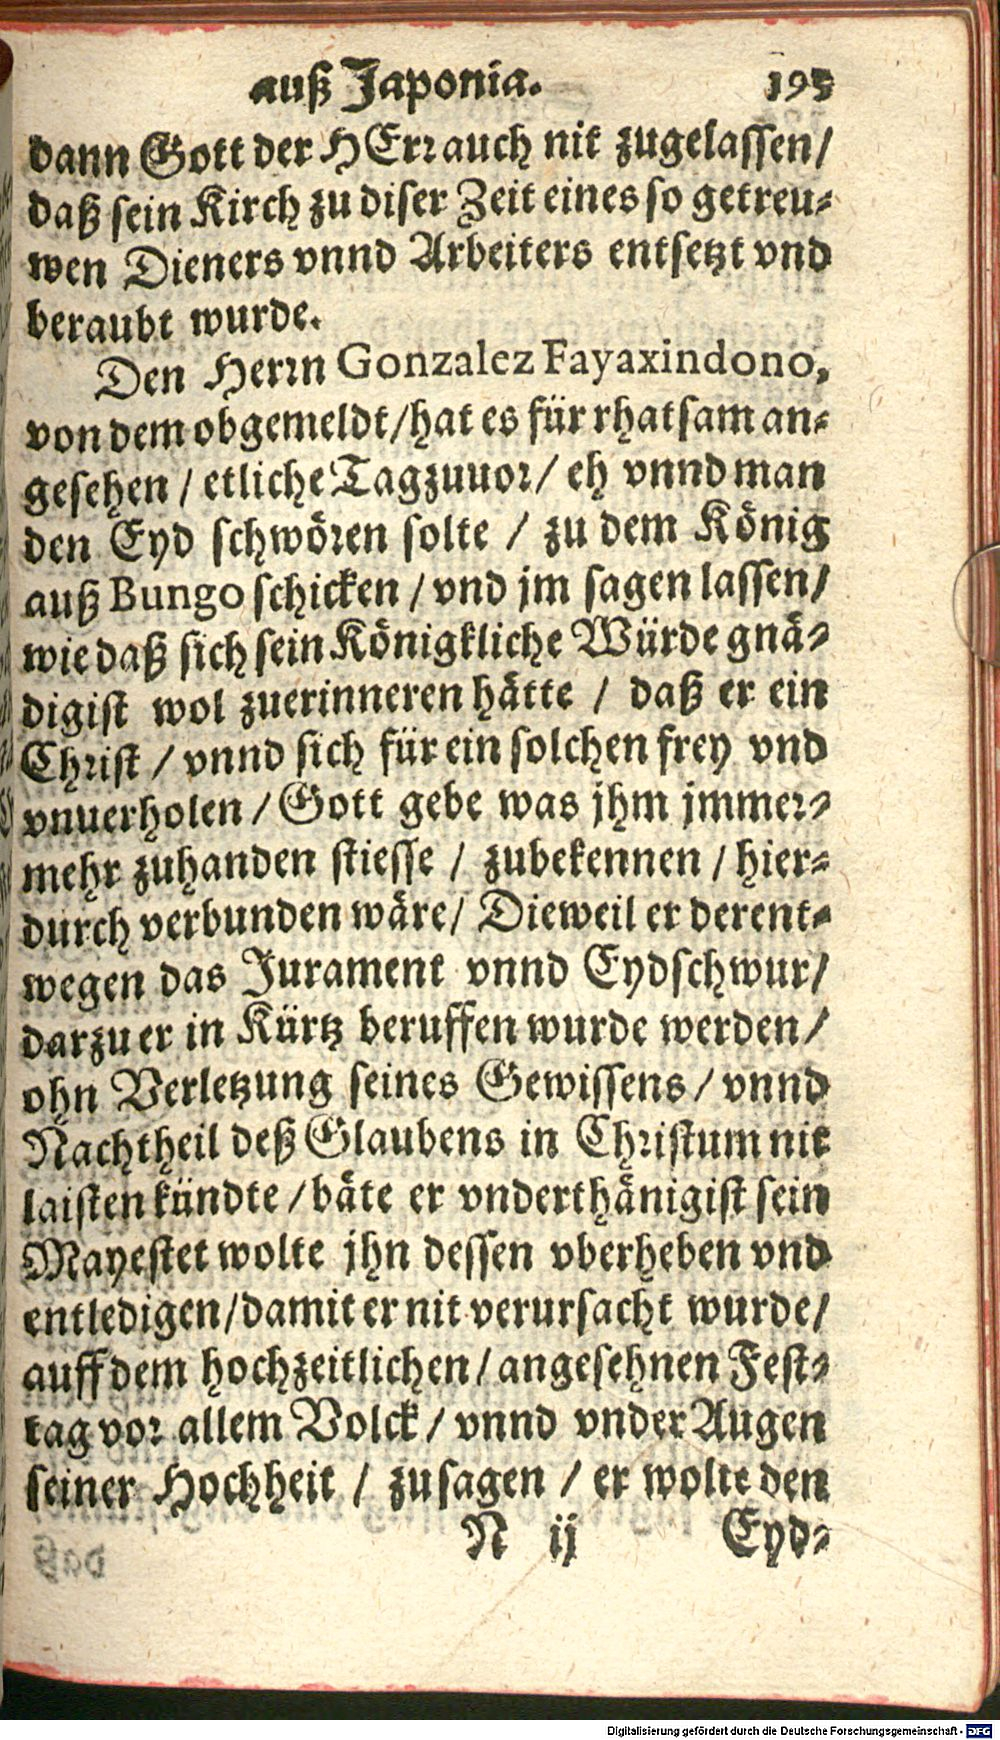 auß Japonia. 195
dann Gott der HErr auch nit zugelassen/
daß sein Kirch zu diser Zeit eines so getreu-
wen Dieners vnnd Arbeiters entsetzt vnd
beraubt wurde.
Den Herrn Gonzalez Fayaxindono,
von dem obgemeldt/ hat es für rhatsam an-
gesehen / etliche Tag zuuor/ eh vnnd man
den Eyd schwören solte / zu dem König
auß Bungo schicken / vnd jm sagen lassen/
wie daß sich sein Königkliche Würde gnä-
digist wol zuerinneren hätte / daß er ein
Christ / vnnd sich für ein solchen frey vnd
vnuerholen / Gott gebe was jhm jmmer-
mehr zuhanden stiesse / zubekennen / hier-
durch verbunden wäre/ Dieweil er derent-
wegen das Jurament vnnd Eydschwur/
darzu er in Kürtz beruffen wurde werden/
ohn Verletzung seines Gewissens / vnnd
Nachtheil deß Glaubens in Christum nit
laisten kündte / bäte er vnderthänigist sein
Mayestet wolte jhn dessen vberheben vnd
entledigen/ damit er nit verursacht wurde/
auff dem hochzeitlichen / angesehnen Fest-
tag vor allem Volck / vnnd vnder Augen
seiner Hochheit / zusagen / er wolte den
N ij Eyd-
Digitalisierung gefördert durch die Deutsche Forschungsgemeinschaft - DFG